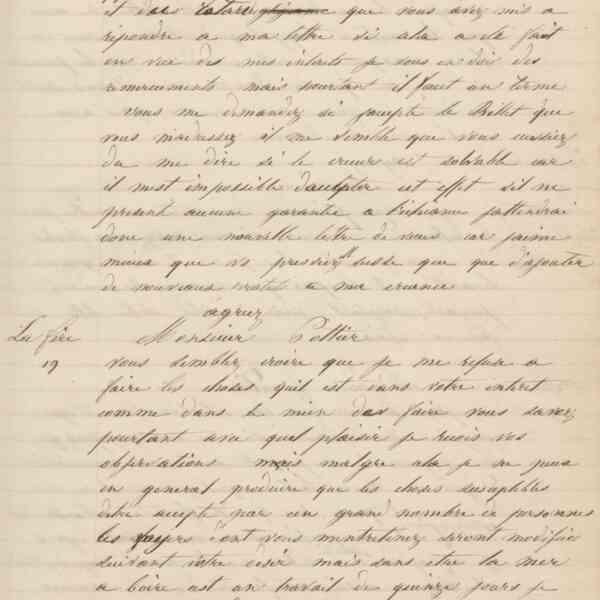 que vous avez mis a
répondre a ma lettre si cela a été fait
en vue des mes intérêts je vous en dois des
remerciments mais pourtant il faut un terme
vous me demandez si j'accepte le Billet que
vous m'adressez il me semble que vous eussiez
du me dire si le creeur est solvable car
il m'est impossible d'accepter cet effet s'il ne
présent aucune garantie a l'échéance j'attendrai
donc une nouvelle lettre de vous car j'aime
mieux que vs pressiez Susse que que d'ajouter
de nouveaux a ma creance
agréez
La fère Monsieur Pottier
19 vous semblez croire que je me refuse a
faire les choses quil est dans votre intéret
comme dans le mien des faire vous savez
pourtant avec quel plaisir je recois vos
observations mais malgre cela je ne puis
en general produire que les choses suseptibles
detre accepté par un grand nombre de personnes
les foyers dont vous m'entretenez seront modifiés
suivant votre désir mais sans etre la mer
a boire cest un travail de quinze jours je